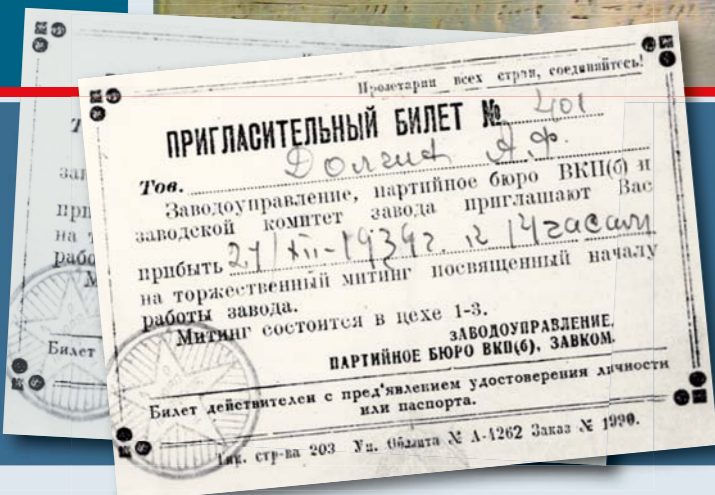 Пролетарии всех стран, соединяйтесь!
ПРИГЛАСИТЕЛЬНЫЙ БИЛЕТ № 401
Тов. А.Ф.
Заводоуправление, партийное бюро ВКП(б) и
заводской комитет завода приглашают Вас
прибыть 21/XII-1939г. к 14 часам
на торжественный митинг посвященный началу
работы завода.
Митинг состоится в цехе 1-3.
ЗАВОДОУПРАВЛЕНИЕ,
ПАРТИЙНОЕ БЮРО ВКП(б), ЗАВКОМ.
Билет действителен с пред'явлением удостоверения личности
или паспорта.
Тип. стр-ва 203 Уп. Обллита № А-4262 Заказ № 1990.
Билет